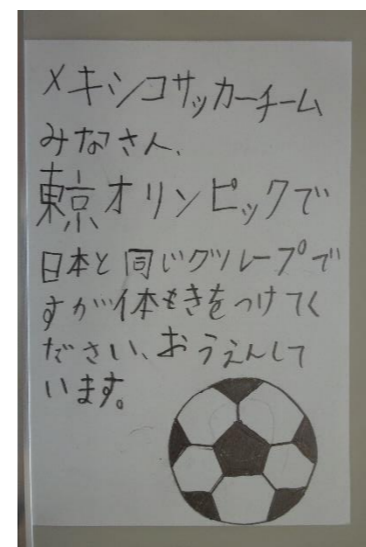 メキシコサッカーチーム
みなさん、
東京オリンピックで
日本と同じグループで
すが体もきをつけてく
ださい、おうえんして
います。